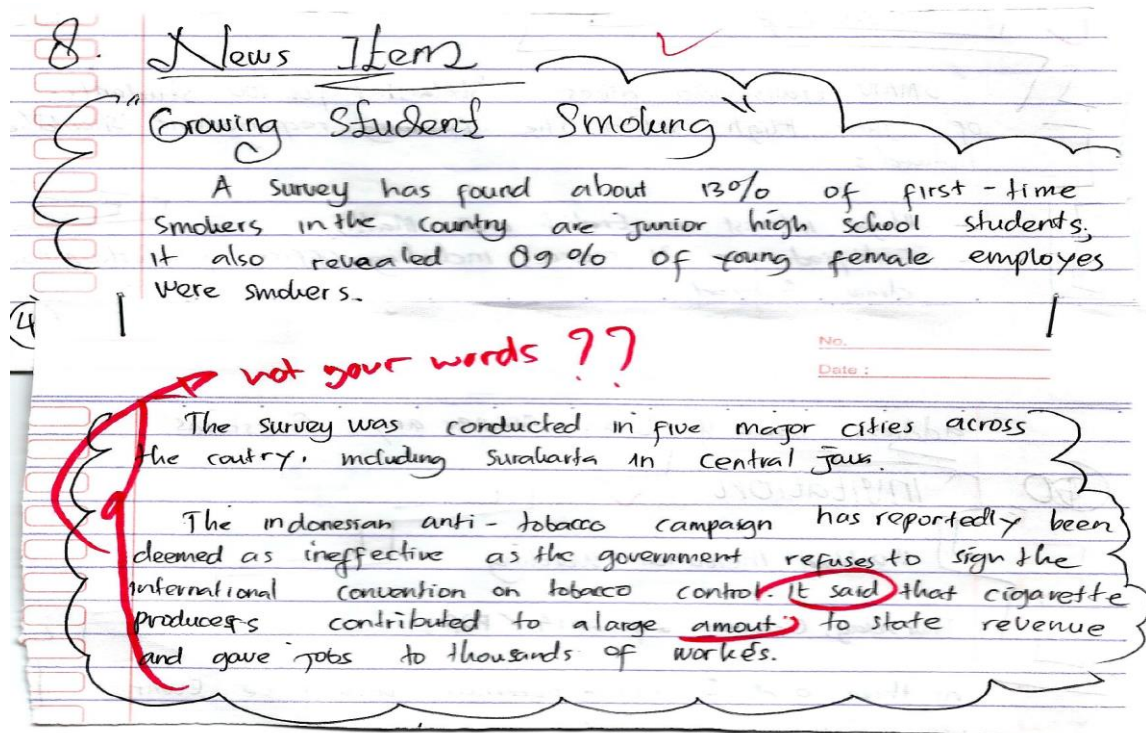 8. News Item
"Growing Student Smoking"
A survey has found about 13% of first-time
smokers in the country are junior high school students,
it also revealed 89% of young female employes
were smokers.
4
not your words ??
No.
Date :
The survey was conducted in five major cities across
the coutry, including Surakarta in Central Java.
The indonesian anti-tobacco campaign has reportedly been
deemed as ineffective as the government refuses to sign the
international convention on tobacco control. It said that cigarette
producers contributed to a large amout to state revenue
and gave jobs to thousands of workes.